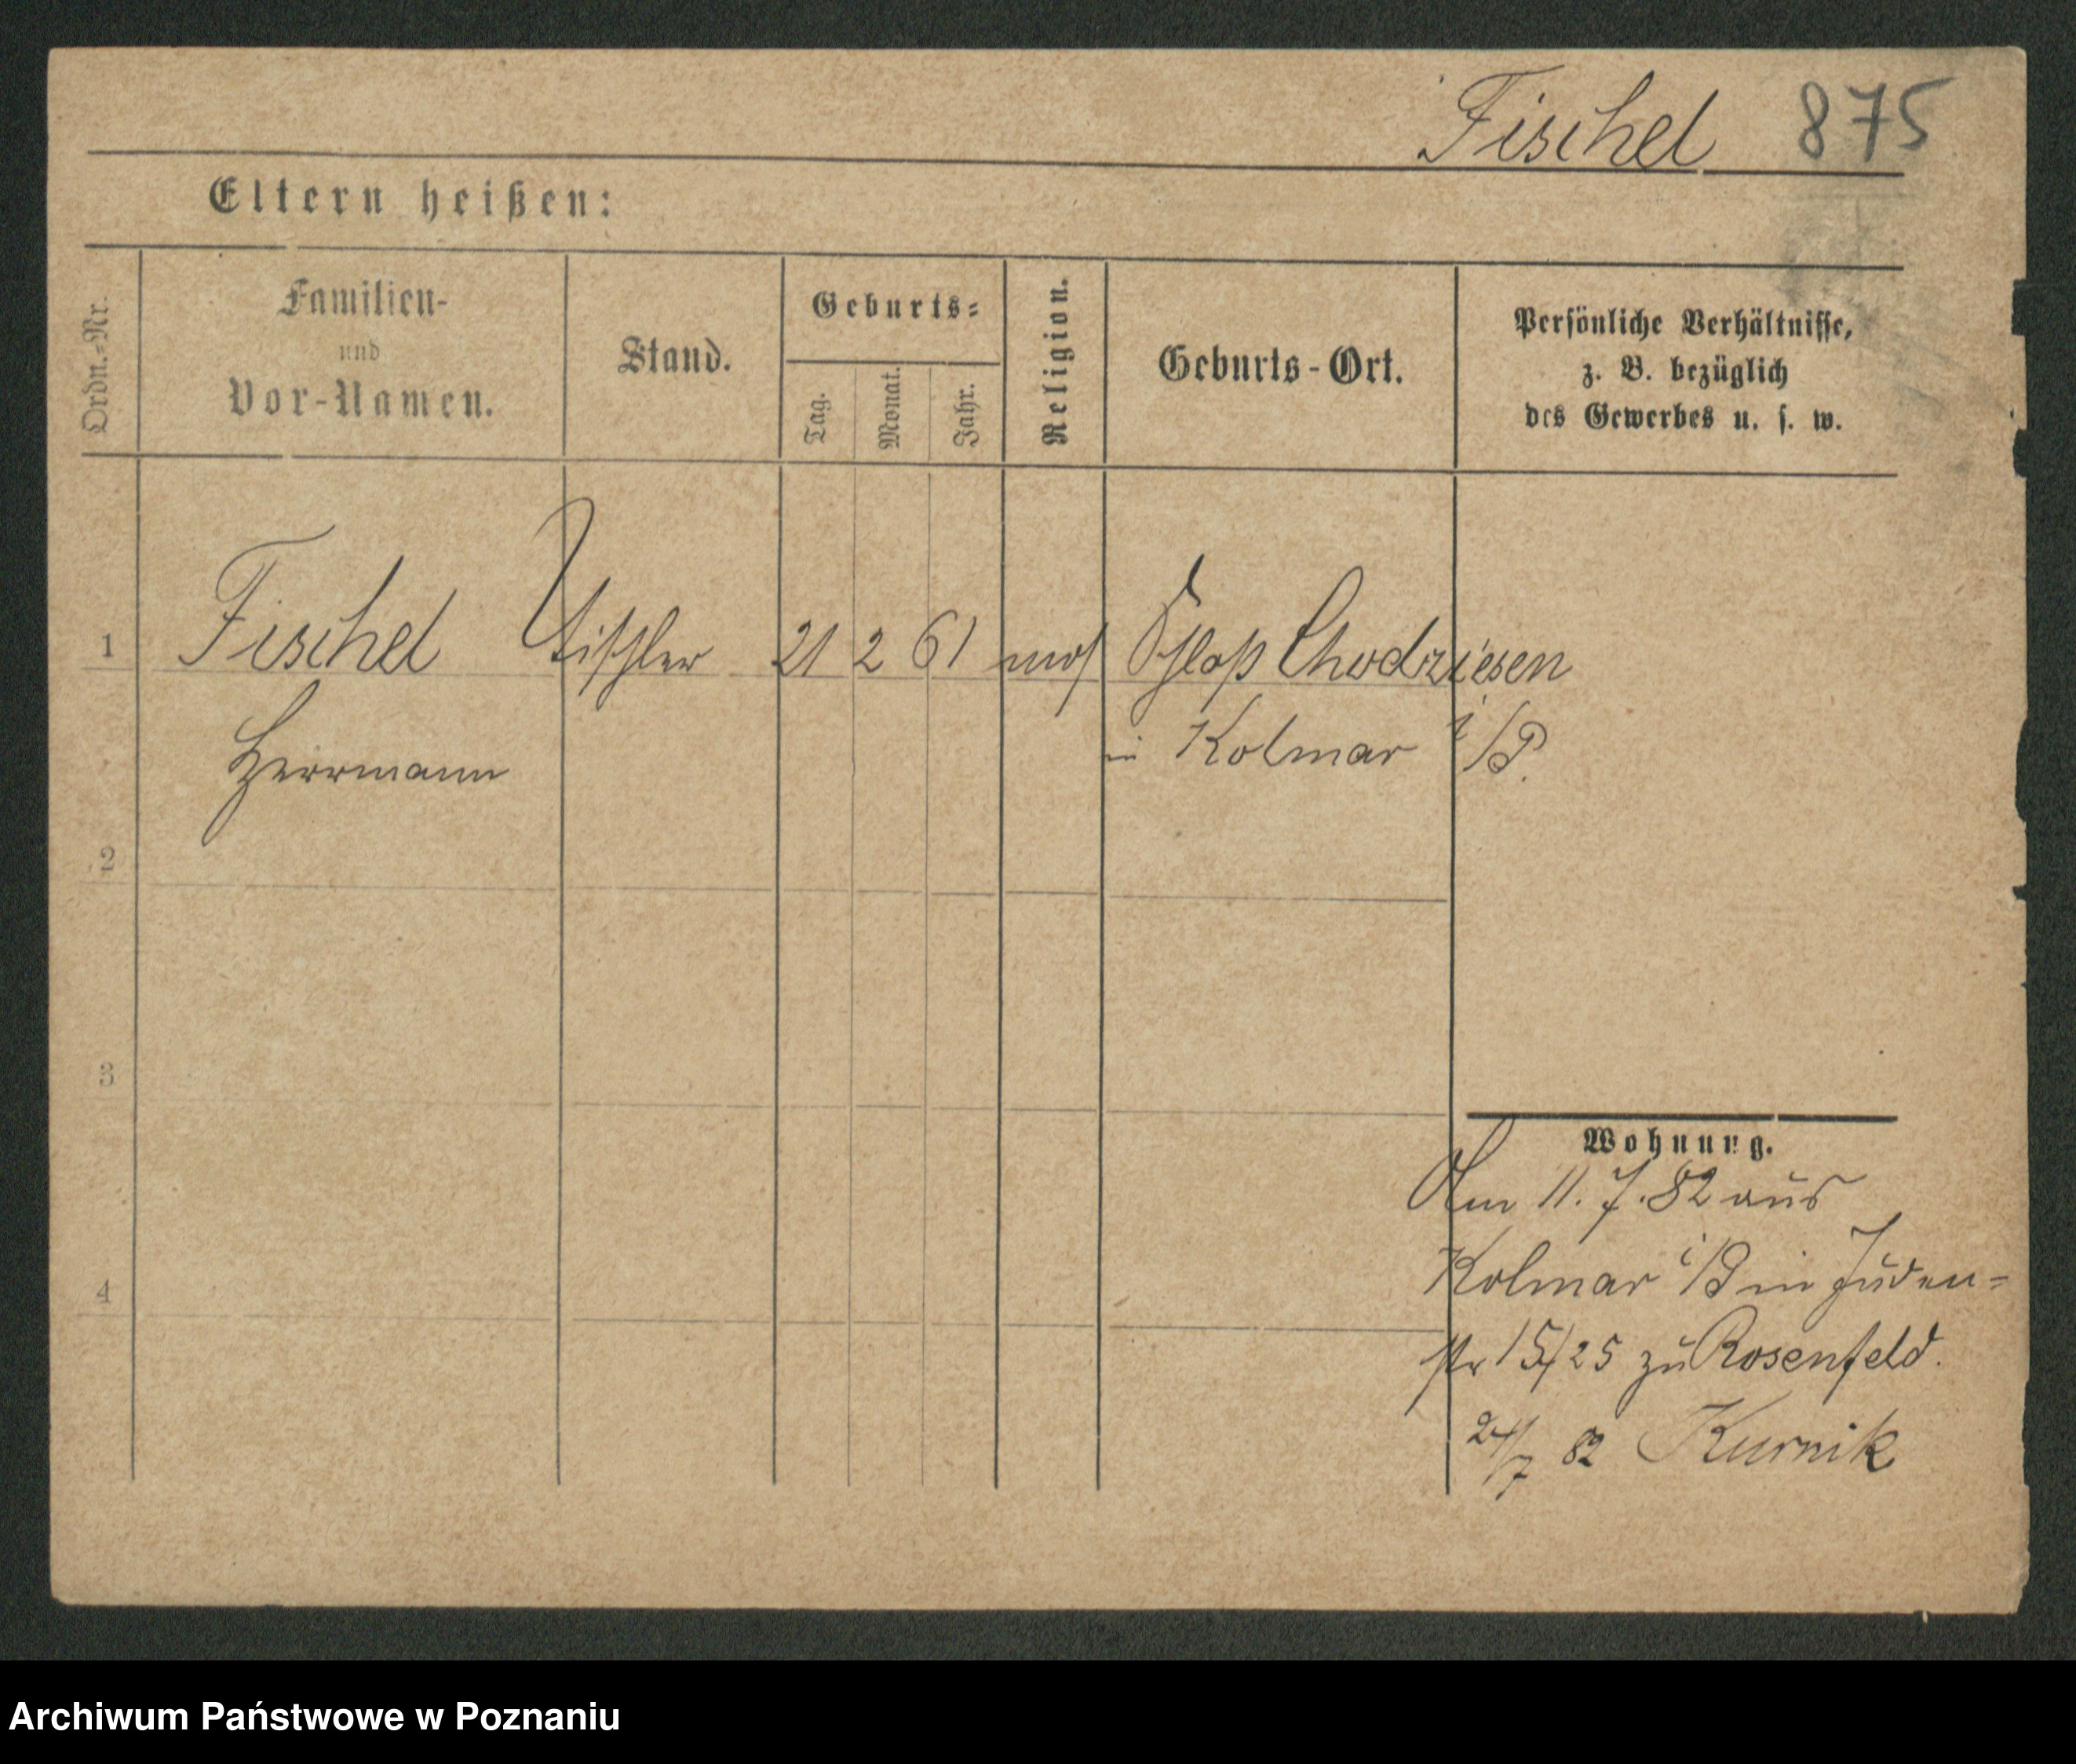 Fischel 875
Eltern heißen:
Ordn.-Nr.
Familien-
und
Vor-Namen.
Stand.
Geburts-
Tag.
Monat.
Jahr.
Religion.
Geburts-Ort.
Persönliche Verhältnisse,
z. B. bezüglich
des Gewerbes u. s. w.
1 Fischel Tischler 21 2 61 mos Schloß Chodziesen
Herrmann in Kolmar i/P.
2
3
4
Wohnung.
Am 11. 7. 82 aus
Kolmar i/P in Juden-
str 15/25 zu Rosenfeld.
24/7 82 Kurnik
Archiwum Państwowe w Poznaniu